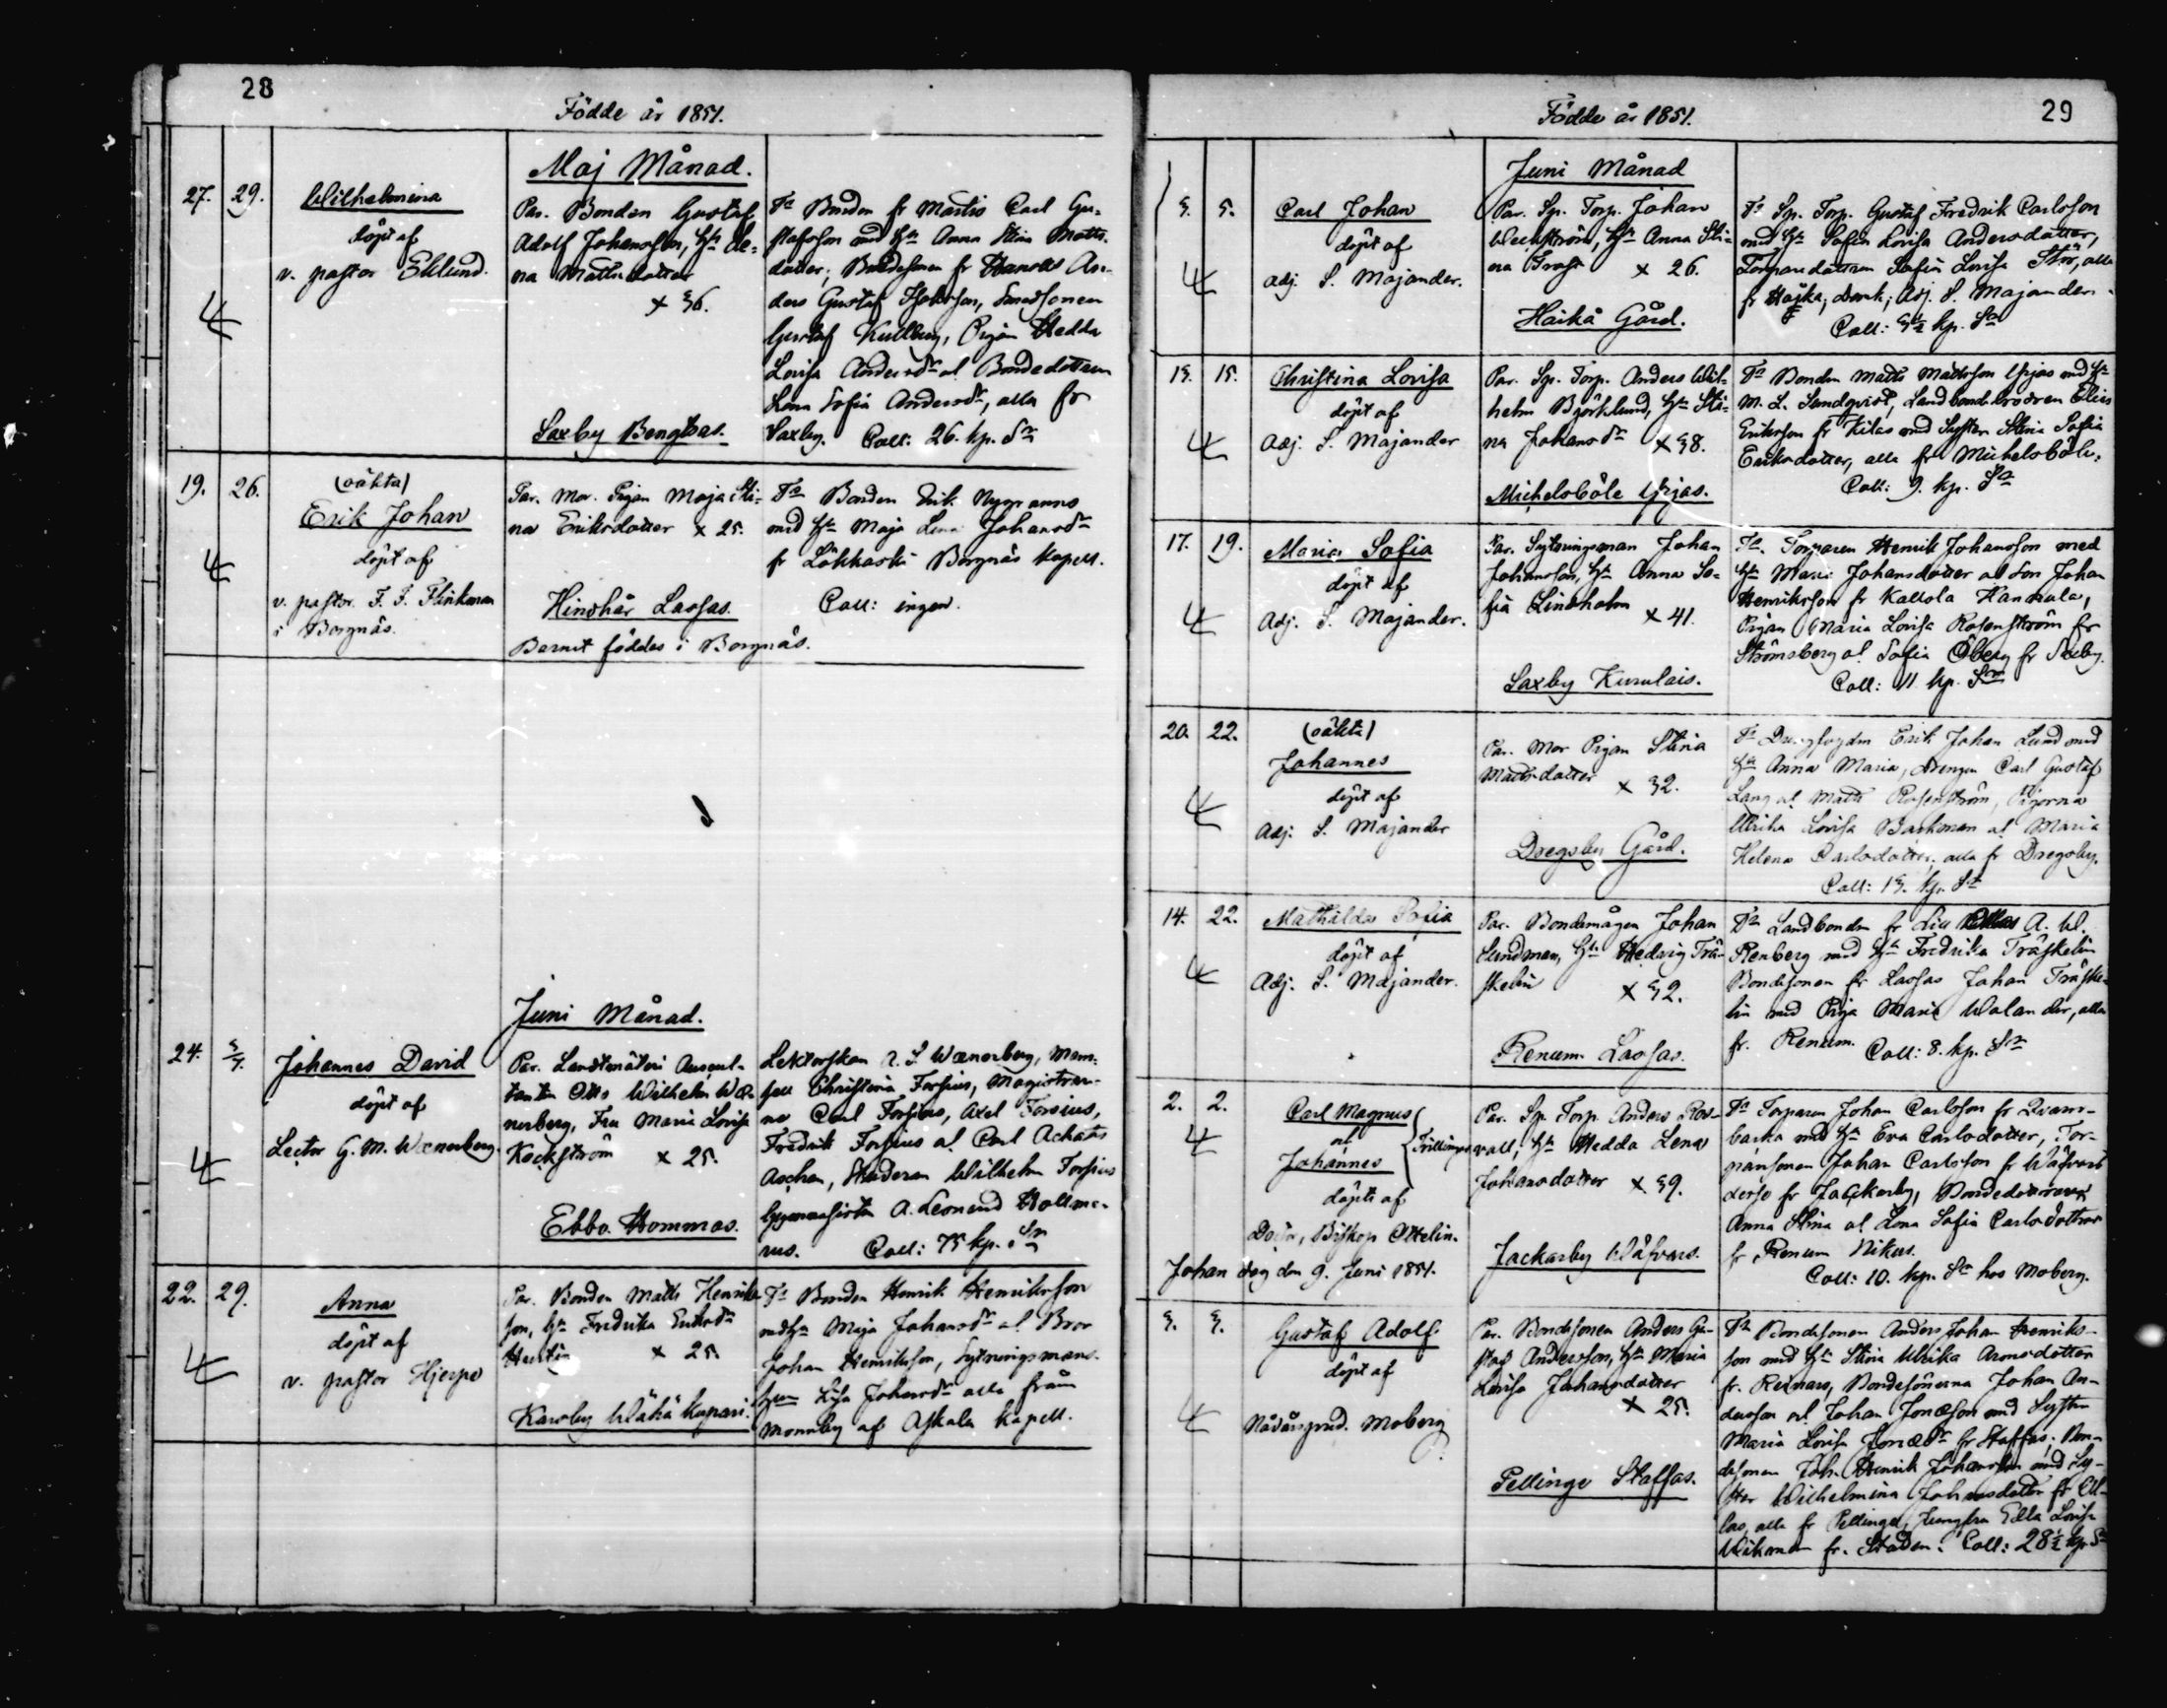 28
Födde år 1851.
Maj Månad.
27. 29. Wilhelmina
döpt af
v. pastor Eklund.
Par. Bonden Gustaf
Adolf Johansson, hu Le-
na Mattsdotter
x 36.
Saxby Bengtsas.
Fr Bonden fr Martis Carl Gu-
stafsson med hu Anna Stina Matts-
dotter, Bondesonen fr Hannus An-
ders Gustaf
Gustaf Kullberg, Pigan Hedda
Lovisa Andersdr al Bondedottern
Lena Sofia Andersdr, alla fr
Saxby. Coll: 26. kp. Sr
19. 26. (oäkta)
Erik Johan
döpt af
v. pastor F. F. Flinkman
i Borgnäs.
Par. Mor. Pigan Maja Sti-
na Eriksdotter x 25.
Hindhår Lassas.
Barnet föddes i Borgnäs.
Fr Bonden Erik Nygranns
med hu Maja Lena Johansdr
fr Lökkoski Borgnäs kapell.
Coll: ingen.
Juni Månad.
24. 5/7. Johannes David
döpt af
Lector G. M. Wænerberg.
Par. Landtmäteri Auscul-
tanten Otto Wilhelm Wæ-
nerberg, Fru Maria Lovisa
Kockström x 25.
Ebbo. Hommas.
Lektorskan A. S. Wænerberg, Mam-
sell Christina Forsius, Magistrar-
ne Carl Forsius, Axel Forsius,
Fredrik Forsius al Carl Achates
Aschan, Studeran Wilhelm Forsius
Gymnasisten A. Leonard Hollme-
rus. Coll: 75 kp. Sr
22. 29. Anna
döpt af
v. pastor Hjerpe
Par. Bonden Matts Henriks-
son, hu Fredrika Eriksdr
x 25.
Karsby Wähä kupari.
Fr Bonden Henrik Henriksson
med hu Maja Johansdr al Bror
Johan Henriksson, Sytningsmans-
hun Lisa Johansdr alla från
Monnby af Askala kapell.
29
Födde år 1851.
Juni Månad
3. 5. Carl Johan
döpt af
adj. S. Majander.
Par. Sp. Torp. Johan
Weckström, hu Anna Sti-
na Trast x 26.
Haikå Gård.
Fr Sp. Torp. Gustaf Fredrik Carlsson
med hu Sofia Lovisa Andersdotter,
Torparedottren Sofia Lovisa Strö, alla
fr Haika; Adj. S. Majander.
Coll: 3½ kp. Sr
13. 15. Christina Lovisa
döpt af
Adj. S. Majander
Par. Sp. Torp. Anders Wil-
helm Björklund, hu Sti-
na Johansdr x 38.
Michelsböle Yrjas.
Fr Bonden Matts Mattsson Yrjas med hu
M. L. Sundqvist, Landbondebrodren Elias
Eriksson fr Kilas med Syster Stina Sofia
Eriksdotter, alla fr Michelsböle.
Coll: 9. kp. Sr
17. 19. Maria Sofia
döpt af
Adj. S. Majander.
Par. Sytningsman Johan
Johansson, hu Anna So-
fia Lindholm x 41.
Saxby Kurulais.
Fr. Torparen Henrik Johansson med
hu Maria Johansdotter al Son Johan
Henriksson fr Kallola Hannula,
Pigan Maria Lovisa Rosenström fr
Strömsberg al Sofia Öberg fr Saxby.
Coll: 11 kp. Sr
20. 22. (oäkta)
Johannes
döpt af
Adj. S. Majander
Par. Mor Pigan Stina
Mattsdotter x 32.
Dregsby Gård.
Fr Erik Johan Lund med
hu Anna Maria, Drengen Carl Gustaf
Lang al Matts Rosenström, Pigorna
Ulrika Lovisa Backman al Maria
Helena Carlsdotter, alla fr Dregsby.
Coll: 13. kp. Sr
14. 22. Mathilda Sofia
döpt af
Adj. S. Majander.
Par. Bondemågen Johan
Sundman, hu Hedvig Trä-
skelin x 32.
Renum. Lassas.
Fr Landbonden fr A. W.
Renberg med hu Fredrika Träskelin
Bondesonen fr Lassas Johan Träske-
lin med Piga Maria Walander, alla
fr. Renum. Coll: 8. kp. Sr
2. 2. Carl Magnus
al Trillingar
Johannes
döpte af
Doctor, Biskop Ottelin.
Johan dog den 9. Juni 1851.
Par. Sp Torp. Anders Ros-
vall, hu Hedda Lena
Johansdotter x 39.
Jackarby Wäfvars.
Fr Torparen Johan Carlsson fr Qvarn-
backa med hu Eva Carlsdotter, Tor-
parsonen Johan Carlsson fr Wäfvars
fr Jackarby, Bondedöttrarna
Anna Stina al Lena Sofia Carlsdöttrar
fr Renum Nikus.
Coll: 10. kp. Sr hos Moberg.
3. 3. Gustaf Adolf
döpt af
Nådårspred. Moberg
Par. Bondesonen Anders Gu-
staf Andersson, hu Maria
Lovisa Johansdotter
x 25.
Pellinge Staffas.
Fr Bondesonen Anders Johan Henriks-
son med hu Stina Ulrika Aronsdotter
fr. Reinars, Bondesönerna Johan An-
dersson al Johan Jonæson med Syster
Maria Lovisa Jonædr fr Staffas; Bon-
desonen Joh. Henrik Johansson med Sy-
ster Wilhelmina Johansdotter fr Ol-
las, alla fr Pellinge, Jungfru Edla Lovisa
Wikman fr. Staden. Coll: 28½ kp Sr